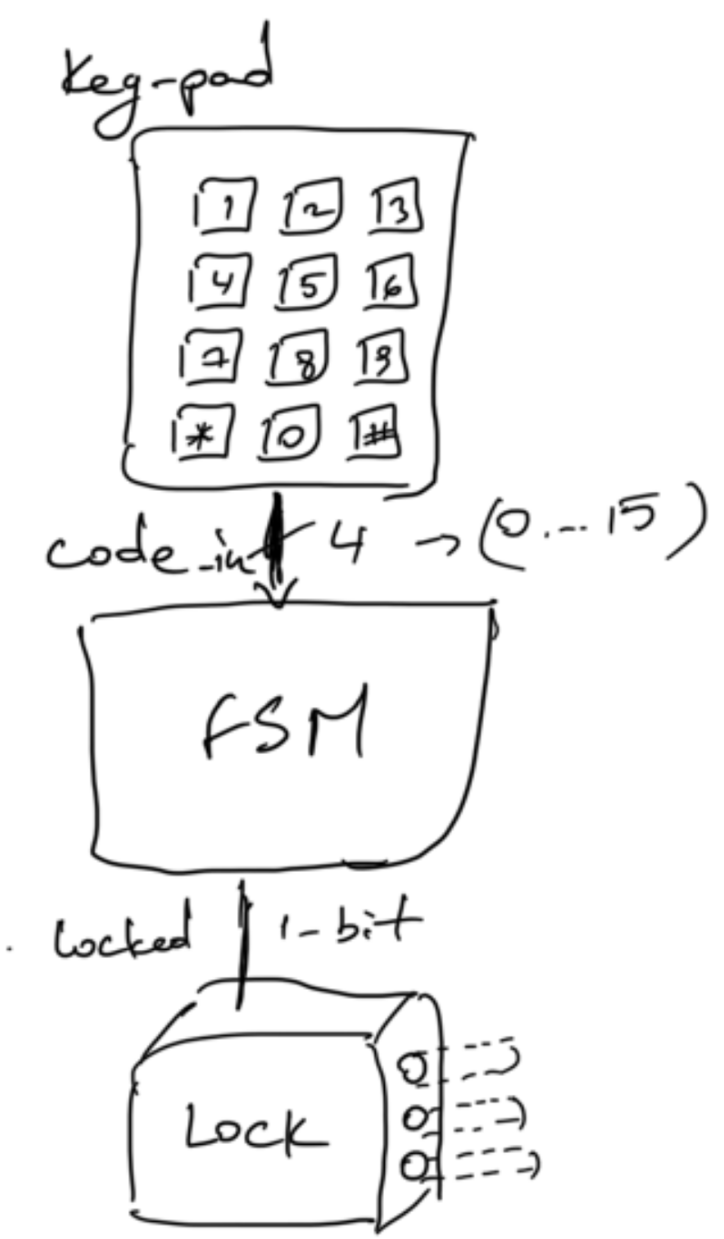 Key-pad
1 2 3
4 5 6
7 8 9
* 0 #
code_in 4 → (0...15)
FSM
Locked 1-bit
LOCK